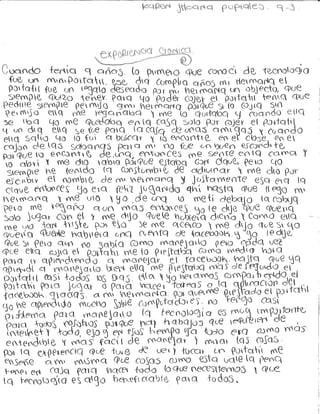 pupiales. 9-3.
experiencia Cronica
Cuando tenia 9 años. lo primero que conoci de tecnologia
fue un miniportatil, ese dia cumplia años mi hermana el
Portatil fue un regalo deseado por mi hermana un objecto, que
siempre quizo tener. Para yo poder cojer el portatil tenia que
Pedirle siempre permiso ami hermana porque si lo cojia sin
Permiso ella me regañaba y me lo quitaba y cuando ella
se iba yo me quedaba en la casa solo por cojer el portatil
y un dia ella se fue para la casa de unas amigas y cuando
ella salio yo lo fui a buscar y lo encontre en el close, en el
cajon de las sobanas para mi no fue un buen escondite
porque lo encontre de una, entonces me sente en la cama y
lo abri y me dio rabia porque estaba con clave, pero yo
siempre he tenido la constumbre de adivinar y me dio por
escribir el nombre de mi hermana y justamente esa era la
clave entonces yo era feliz jugando ahi hasta que llego mi
hermana y me vio y yo de una lo meti debajo la cobija
pero me regaño aun mas entonces, yo le dije que queria
solo jugar con el y me dijo que le hubiera dicho y como ella
me vio tan triste por eso se me acerco y me dijo que si yo
queria que me habriera una cuenta de facebook, y yo le dije
que si pero aun no sabia como manejarlo pero cada vez
que ella cojia el portatil me lo prestaba como media hora
para ir aprendiendo a manejar el facebook, hasta que ya
aprendi a manejarlo bien ella me prestaba mas de seguido el
portatil casi todos los dias. ella y yo ibamos compartiendo el
portatil para jugar o para hacer tareas o la aplicacion del
facebook gracias a mi hermanita por haberme prestado el portatil
yo he aprendido mucho sobre computadores. no tengo casi
problema para manejarlo la tecnologia es muy importante
para todos nosotros porque hay trabajos que requieren de
internet y todo, ejo y en esos tiempo era todo era como mas
entendible y mas facil de manejar y mirar las cosas.
por la experiencia que tuve de ver y tocar un portatil me
enseñe a mi misma que cosas como esta vale la pena
tener en casa para hacer todo lo que necesitemos y que
la tecnologia es algo beneficiable para todos.